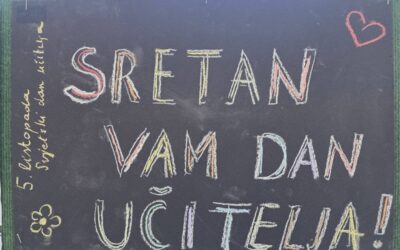 5. listopada
Svjetski dan učitelja
SRETAN
VAM DAN
UČITELJA!